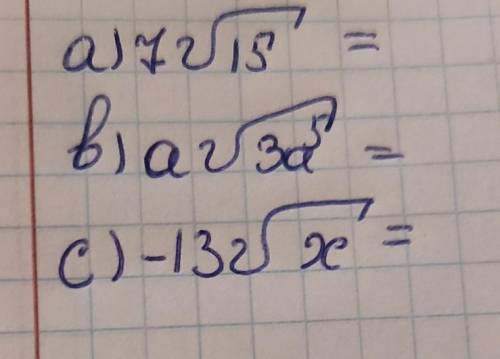 a) 7√15 =
b) a√3a⁵ =
c) -13√x =